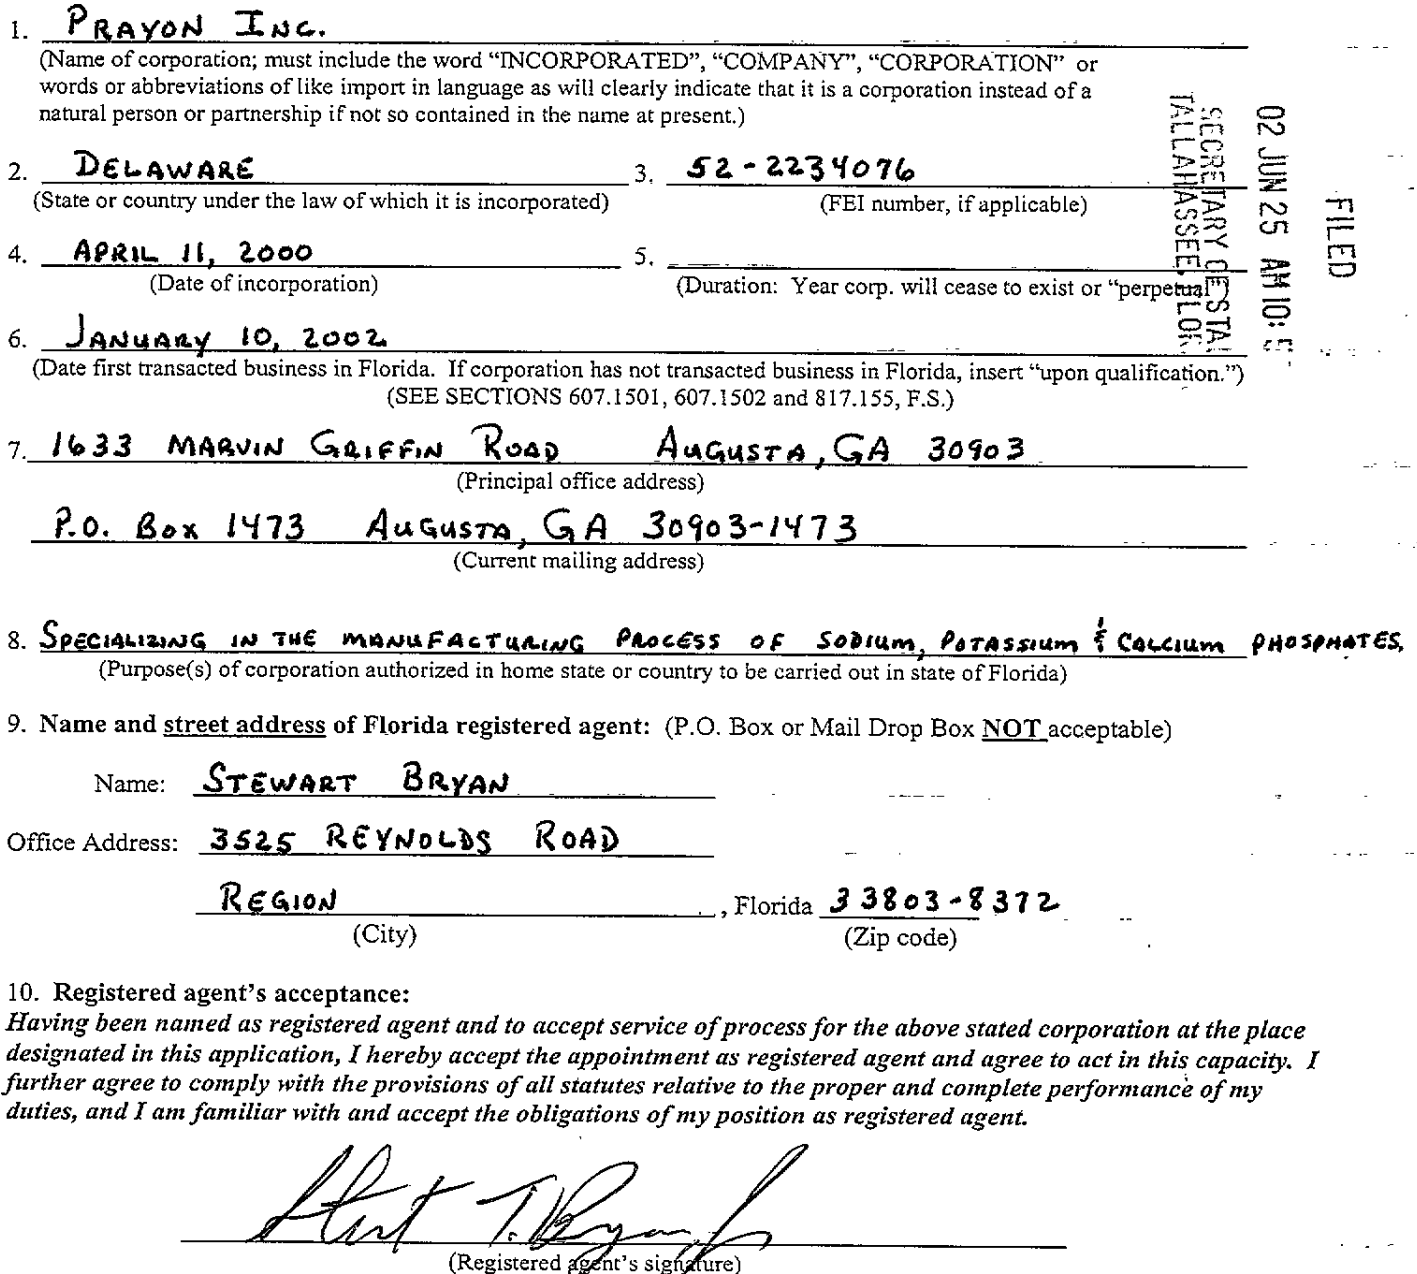 1. PRAYON INC.
(Name of corporation; must include the word “INCORPORATED”, “COMPANY”, “CORPORATION” or
words or abbreviations of like import in language as will clearly indicate that it is a corporation instead of a
natural person or partnership if not so contained in the name at present.)
2. DELAWARE 3. 52-2234076
(State or country under the law of which it is incorporated) (FEI number, if applicable)
4. APRIL 11, 2000 5.
(Date of incorporation) (Duration: Year corp. will cease to exist or “perpetual”)
6. JANUARY 10, 2002
(Date first transacted business in Florida. If corporation has not transacted business in Florida, insert “upon qualification.”)
(SEE SECTIONS 607.1501, 607.1502 and 817.155, F.S.)
7. 1633 MARVIN GRIFFIN ROAD AUGUSTA, GA 30903
(Principal office address)
P.O. Box 1473 AUGUSTA, GA 30903-1473
(Current mailing address)
8. SPECIALIZING IN THE MANUFACTURING PROCESS OF SODIUM, POTASSIUM & CALCIUM PHOSPHATES.
(Purpose(s) of corporation authorized in home state or country to be carried out in state of Florida)
9. Name and street address of Florida registered agent: (P.O. Box or Mail Drop Box NOT acceptable)
Name: STEWART BRYAN
Office Address: 3525 REYNOLDS ROAD
REGION, Florida 33803-8372
(City) (Zip code)
10. Registered agent's acceptance:
Having been named as registered agent and to accept service of process for the above stated corporation at the place
designated in this application, I hereby accept the appointment as registered agent and agree to act in this capacity. I
further agree to comply with the provisions of all statutes relative to the proper and complete performance of my
duties, and I am familiar with and accept the obligations of my position as registered agent.
(Registered agent's signature)
FILED
02 JUN 25 AM 10:
SECRETARY OF STA
TALLAHASSEE, FLOR